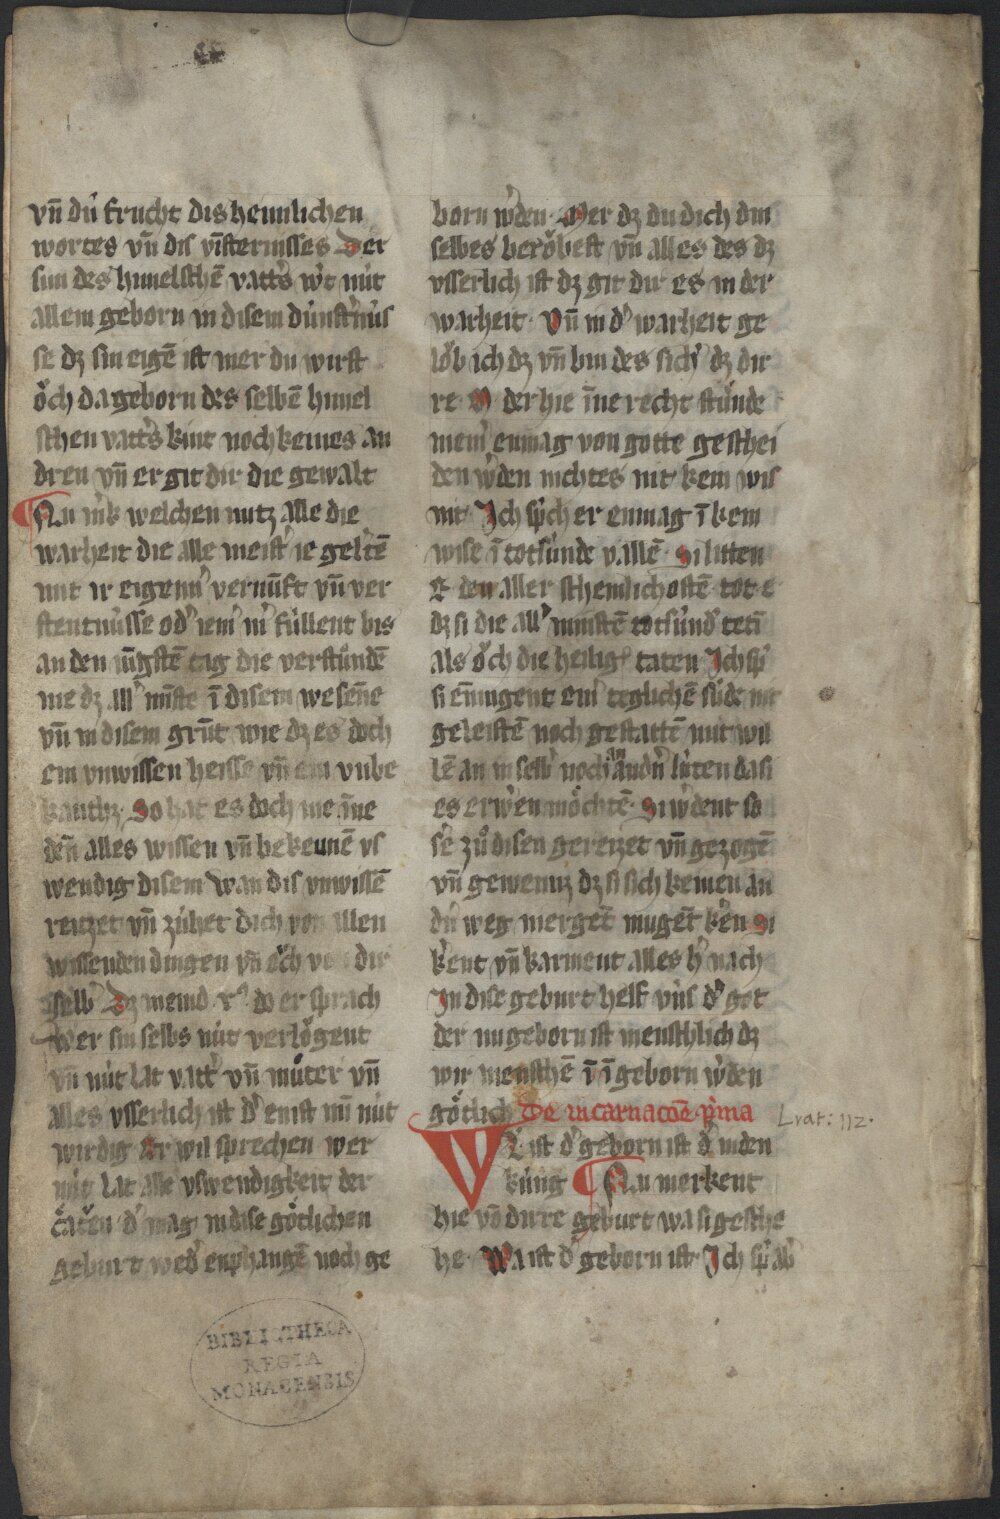 vn̄ dú frucht dis heimlichen
wortes vn̄ dis vīsternisses Der
sun des himelschē vatt's w't mit
allem geborn in disem dúnst'nús
se dz sin eigē ist mer du wirst
ǒch da geborn des selbē himel
schen vatt's kint noch keines an
dren vn̄ er git dir die gewalt
Nu m'k welchen nutz Alle die
warheit die alle meist' ie gel'tē
mit ir eigenn' vernunft vn̄ ver
stentnússe od' iem' m' fúllent bis
an den iūgstē tag die verstůndē
nie dz all' mīste ī disem wesēne
vn̄ in disem grūt wie dz es doch
ein vnwissen heisse vn̄ ein vnbe
kanthz. So hat es doch me īne
dēn alles wissen vn̄ bekennē vs
wendig disem Wan dis vnwissē
reitzet vn̄ zúhet dich von allen
wissenden dingen vn̄ ǒch von dir
selb' Dz meind do er sprach
Wer sin selbs nút verlǒgent
vn̄ nút lat vatt' vn̄ můter vn̄
alles vsserlich ist d' enist mī nút
wirdig Er wil sprechen wer
nút lat alle vswendigkeit der
c'atůren d' mag in dise gǒtlichen
geburt wed' enphangē noch ge
born w'den. Mer dz du dich din
selbes berǒbest vn̄ alles des dz
vsserlich ist dz git dir es in der
warheit. Vn̄ in d' warheit ge
lǒb ich dz vn̄ bin des sich' dz dir
re M der hie īne recht stůnde
niem' enmag von gotte geschei
den w'den nichtes nit kein wis
nit. Ich sp'ch er enmag ī kein
wise ī totsúnde vallē. Si litten
E den aller schemlichostē tot e
dz si die all' ministē totsúnd' tetī
als ǒch die heilig taten Ich sp'
si enmugent ein teglichē súde nit
geleistē noch gestattē mit wil
lē an in selb' noch an andn' lúten da si
es erw'en mǒchtē. Si w'dent so
se' zů disen gereizet vn̄ gezogē
vn̄ gewenuz dz si sich keinen an
dn' weg mergēt mugēt k'en Si
k'ent vn̄ karment alles h' nach
In dise geburt helf vns d' got
der nu geborn ist menschlich dz
wir menschē ī ī geborn w'den
gǒtlich De incarnacōe p'ma
Lrat: 112.
Wa ist d' geborn ist d' iuden
kúng Nu merkent
hie vō dirre geburt wa si gesche
he. Wa ist d' geborn ist. Ich sp' ab'
BIBLIOTHECA
REGIA
MONACENSIS